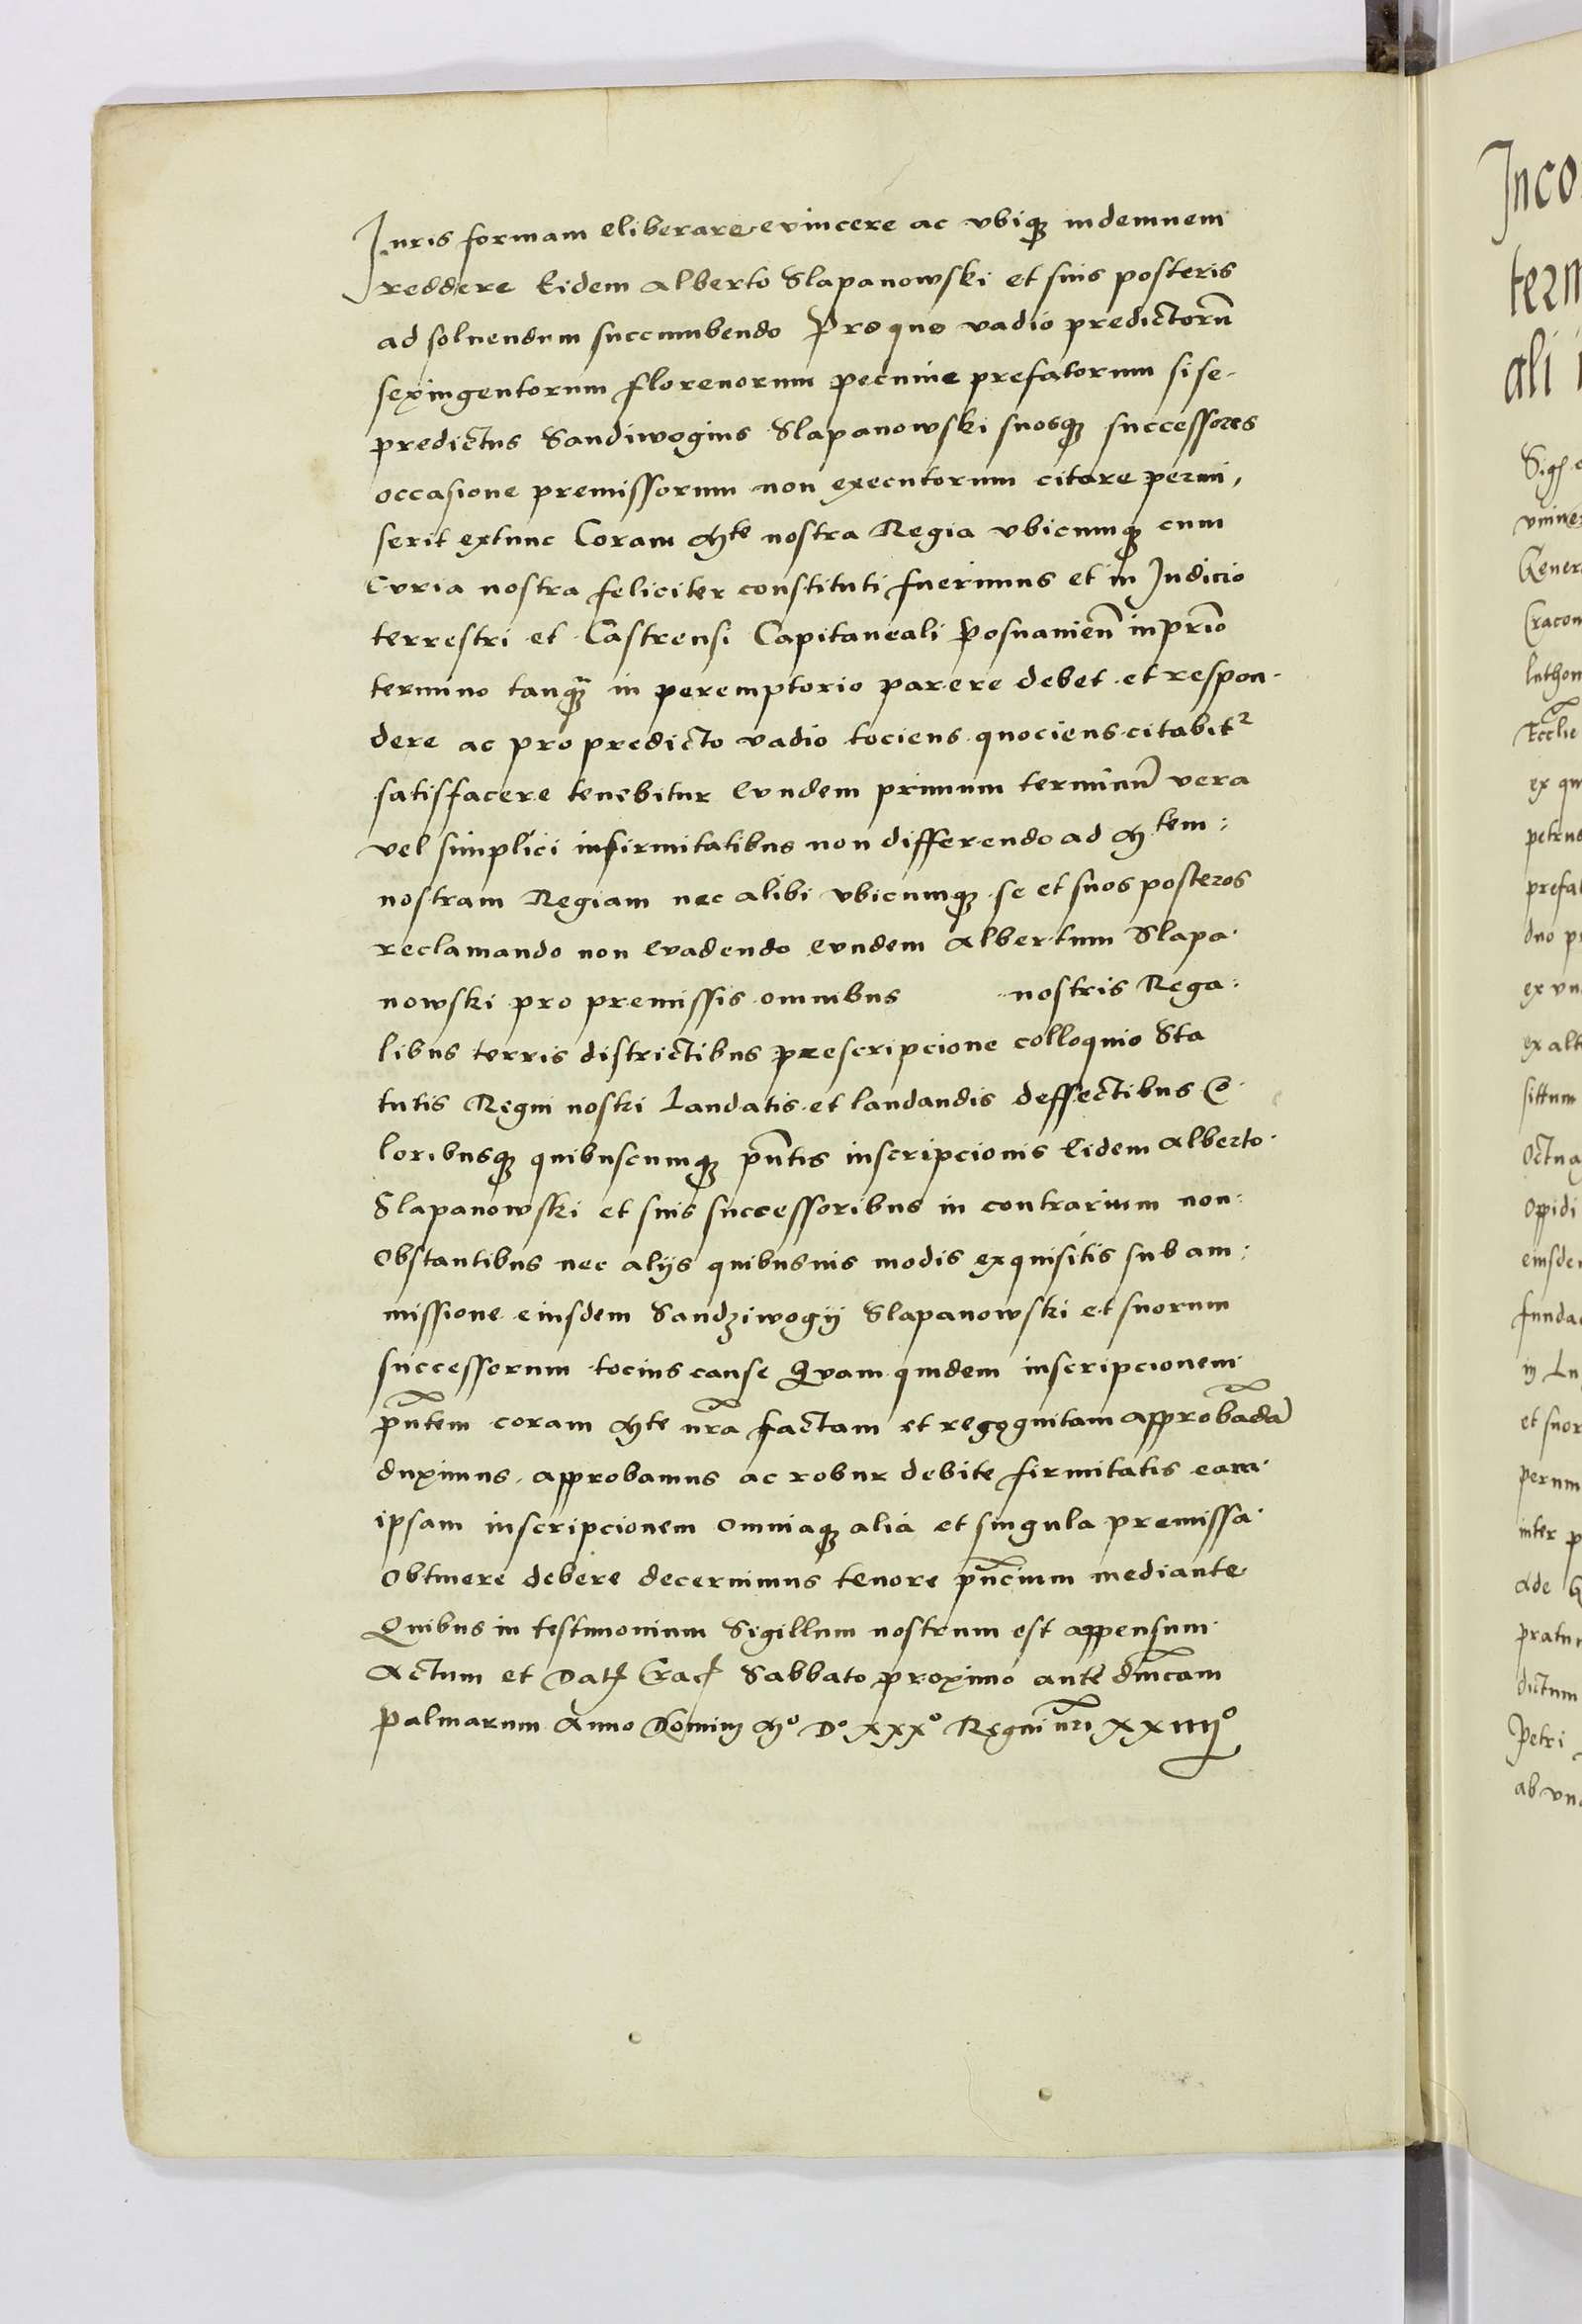 Iuris formam eliberare evincere ac vbiqꝫ indemnem
reddere Eidem Alberto Slapanowski et suis posteris
ad soluendum succumbendo Pro quo vadio predictorū
sexingentorum florenorum pecunie prefatorum si se
predictus Sandiwogius Slapanowski suosqꝫ successores
occasione premissorum non executorum citare permi,
serit extunc Coram Mte nostra Regia vbicumqꝫ cum
Curia nostra feliciter constituti fuerimus et in Iudicio
terrestri et Castrensi Capitaneali Posnanień in prīo
termino tanqꝫ in peremptorio parere debet et respon-
dere ac pro predicto vadio tociens quociens citabitr
satisfacere tenebitur Eundem primum terminū vera
vel simplici infirmitatibus non differendo ad Mtem:
nostram Regiam nec alibi vbicumqꝫ se et suos posteros
reclamando non Euadendo Eundem Albertum Slapa
nowski pro premissis omnibus nostris Rega:
libus terris districtibus prescripcione colloquio Sta
tutis Regni nostri Laudatis et laudandis deffectibus Co
loribusqꝫ quibuscumqꝫ pn̄tis inscripcionis Eidem Alberto
Slapanowski et suis successoribus in contrarium non:
Obstantibus nec alijs quibusuis modis exquisitis sub am:
missione eiusdem Sandziwogij Slapanowski et suorum
successorum tocius cause Quam quidem inscripcionem
pn̄tem coram Mte nr̄a factam et regognitam approbādā
duximus approbamus ac robur debite firmitatis eam
ipsam inscripcionem Omniaqꝫ alia et singula premissa
Obtinere debere decernimus tenore pn̄cium mediante
Quibus in testimonium Sigillum nostrum est appensum
Actum et Datꝭ Cracꝭ Sabbato proximo ante dn̄icam
Palmarum Anno Domini Mo Do xxxo Regni nr̄i xxiiijo
Inco
term
ali
Sigꝭ
vniuer
Gener
Cracou
Ecclie
ex qu
petrus
prefat
duo pr
ex vn
ex alt
sittum
Octua
Oppidi
eiusde
funda
in Lu
et suor
perum
inter p
pratu
dictum
Petri
ab vn